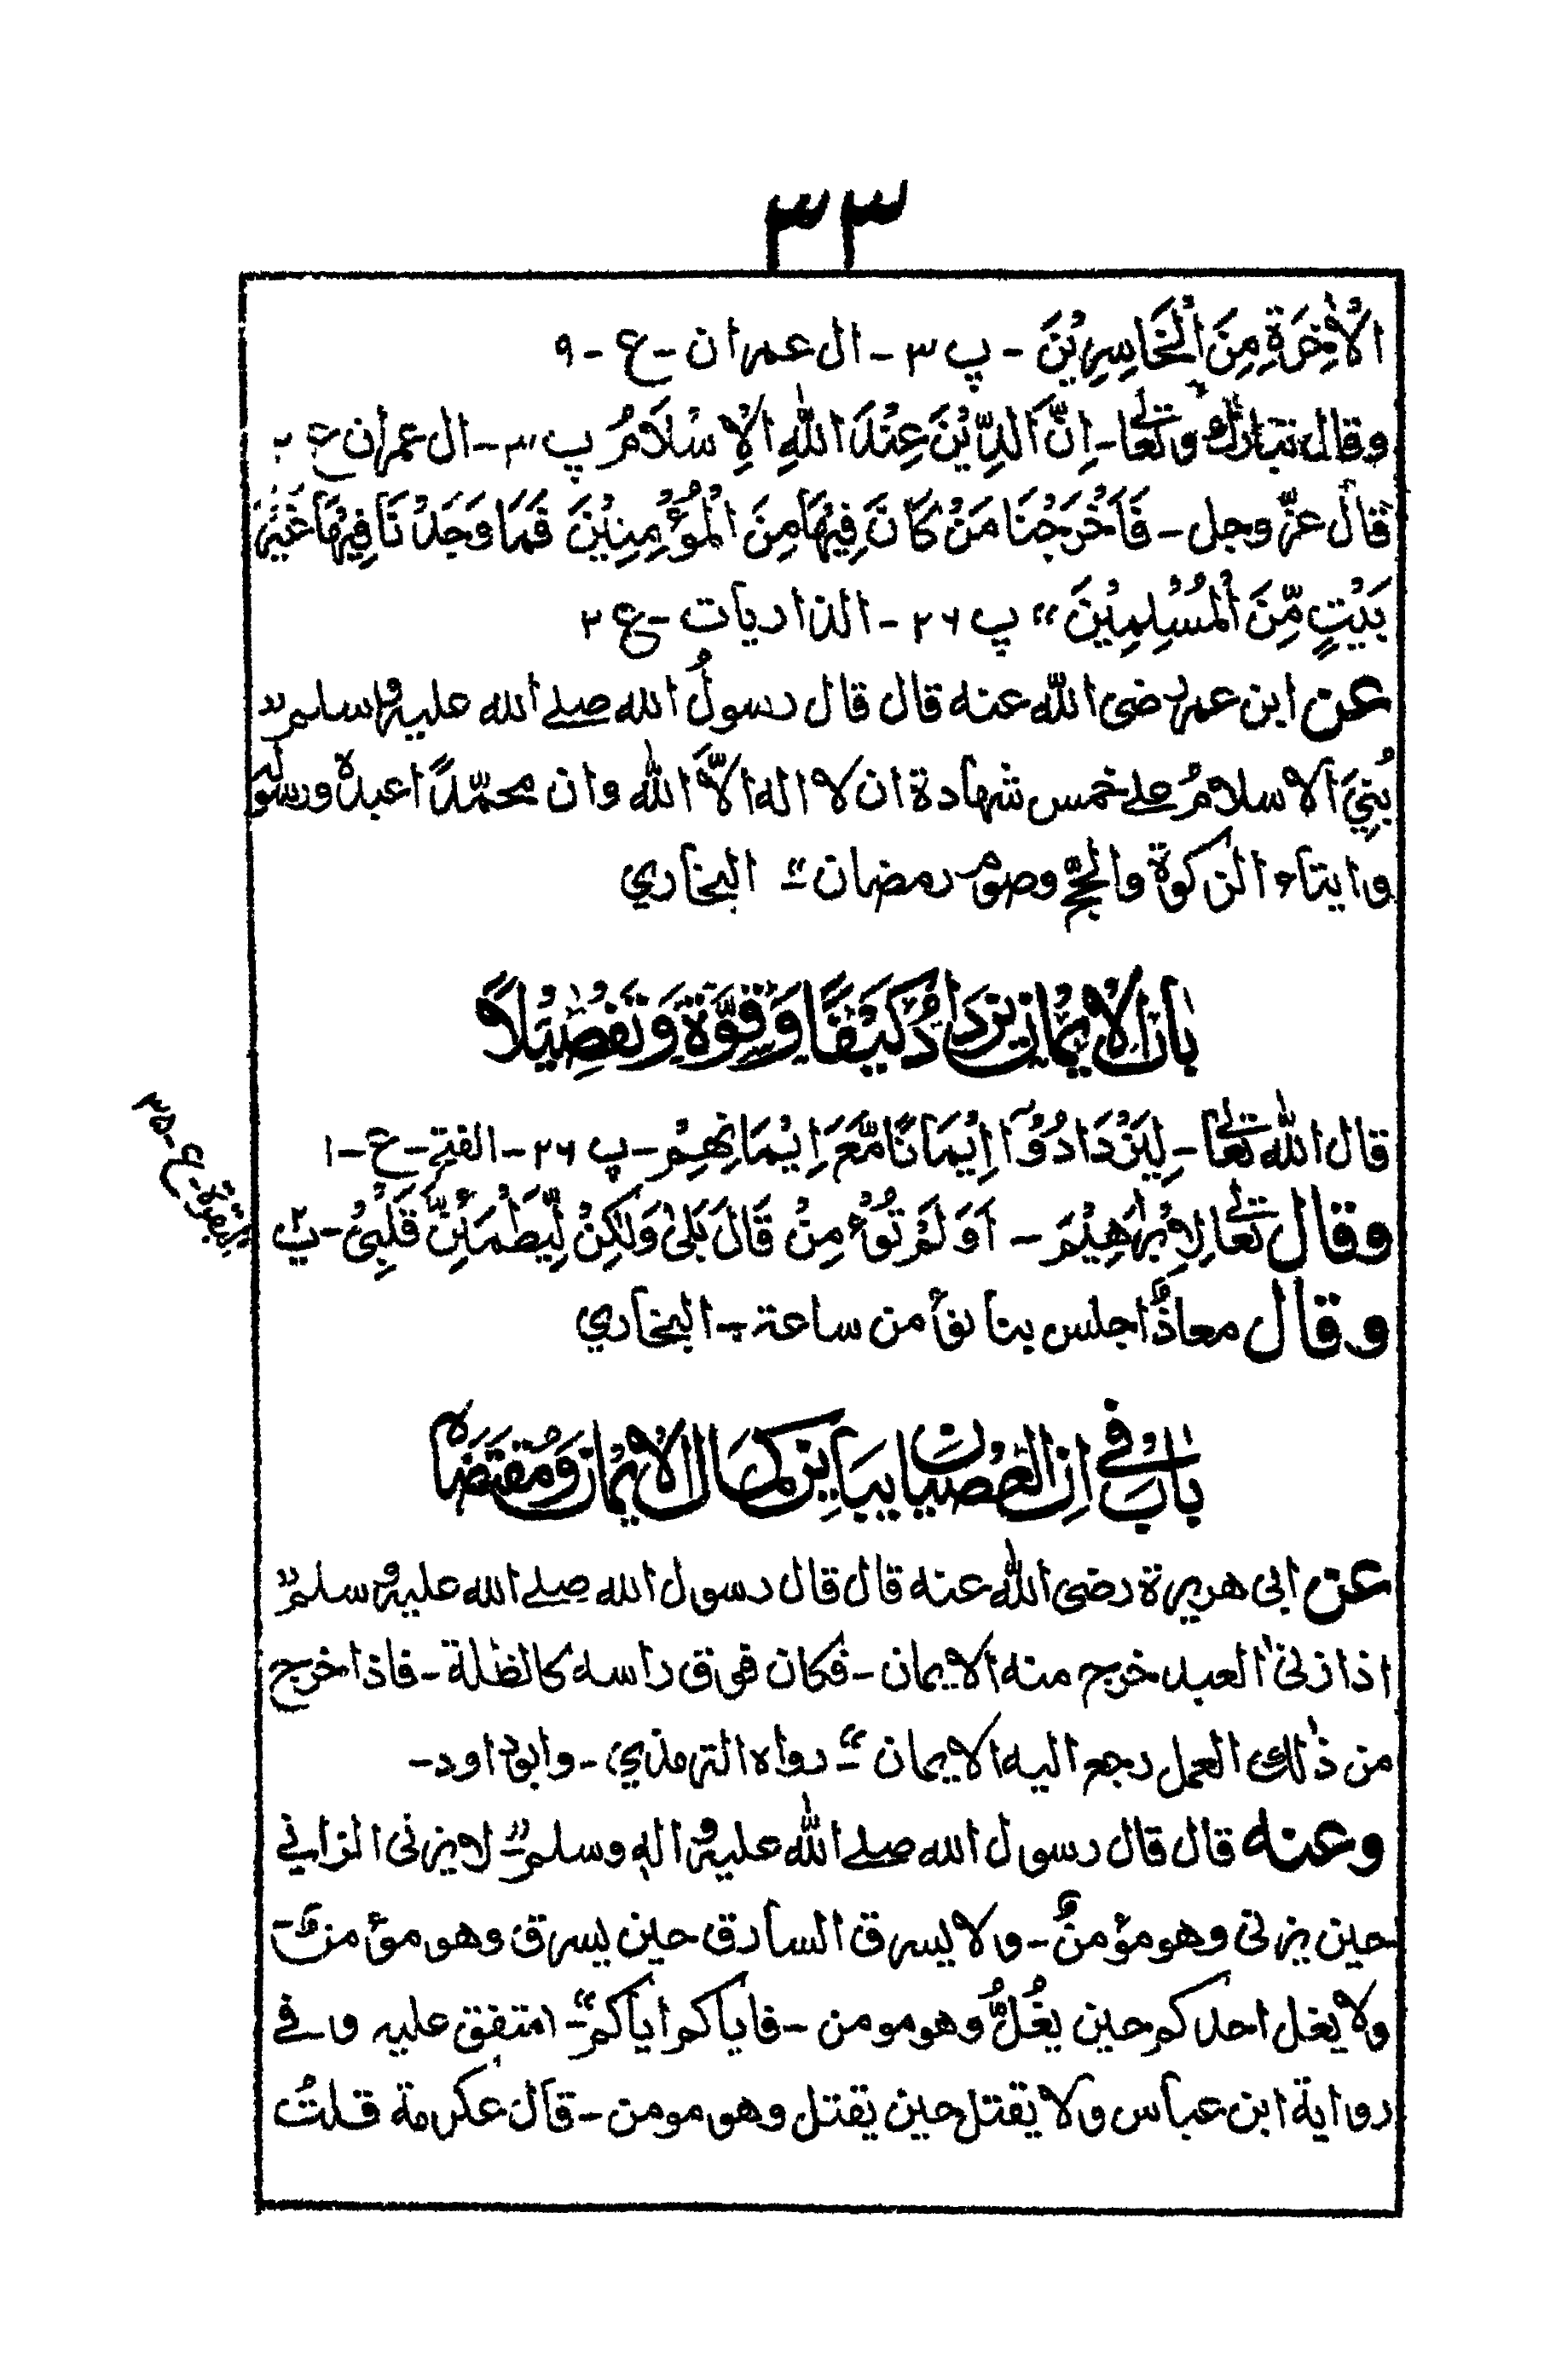 ٣٣
الْاٰخِرَةِ مِنَ الْخَاسِرِيْنَ - پ ٣ - ال عمران - ع - ٩
وقال تبارك وتعالى - اِنَّ الدِّيْنَ عِنْدَ اللّٰهِ الْاِسْلَامُ پ ٣ - ال عمران ع ٢
قال عزّ وجل - فَاَخْرَجْنَا مَنْ كَانَ فِيْهَا مِنَ الْمُؤْمِنِيْنَ فَمَا وَجَدْنَا فِيْهَا غَيْرَ
بَيْتٍ مِّنَ الْمُسْلِمِيْنَ" پ ٢٦ - الذاريات - ع ٢
عن ابن عمر رضى اللّٰه عنه قال قال رسولُ الله صلے الله عليه وسلم"
بُنِيَ الاسلامُ علے خمس شهادة ان لا اله الاَّ اللّٰه وان محمّدًا عبدهٗ ورسولُهٗ
وايتاء الزكوة والحجّ وصوم رمضان"- البخاري
بابُ الْاِيْمَانِ يَزْدَادُ كَيْفًا وَّقُوَّةً وَّتَفْصِيْلًا
قال اللّٰه تعالى - لِيَزْدَادُوْٓا اِيْمَانًا مَّعَ اِيْمَانِهِمْ - پ ٢٦ - الفتح - ع - ١
وقال تعالى لِاِبْرٰهِيْمَ - اَوَلَمْ تُؤْمِنْ قَالَ بَلٰى وَلٰكِنْ لِّيَطْمَئِنَّ قَلْبِيْ - پ ٣
البقرة - ع - ٣٥
وقال معاذٌ اجلس بنا نؤمن ساعة - البخاري
بابٌ في ان العصيان يباين كمال الايمان ومُقتضاه
عن ابى هريرة رضى اللّٰه عنه قال قال رسول الله صلے الله عليه وسلم"
اذا زنىٰ العبد خرج منه الايمان - فكان فوق راسه كالظلة - فاذا خرج
من ذٰلك العمل رجع اليه الايمان"- رواه الترمذي - وابو داود -
وعنه قال قال رسول الله صلے اللّٰه عليه واله وسلم"- لا يزنى الزاني
حين يزنى وهو مؤمنٌ - ولا يسرق السارق حين يسرق وهو مؤمن -
ولا يغل احدكم حين يغُلُّ وهو مومن - فاياكم اياكم"- متفق عليه وفے
رواية ابن عباس ولا يقتل حين يقتل وهو مومن - قال عكرمة قلتُ